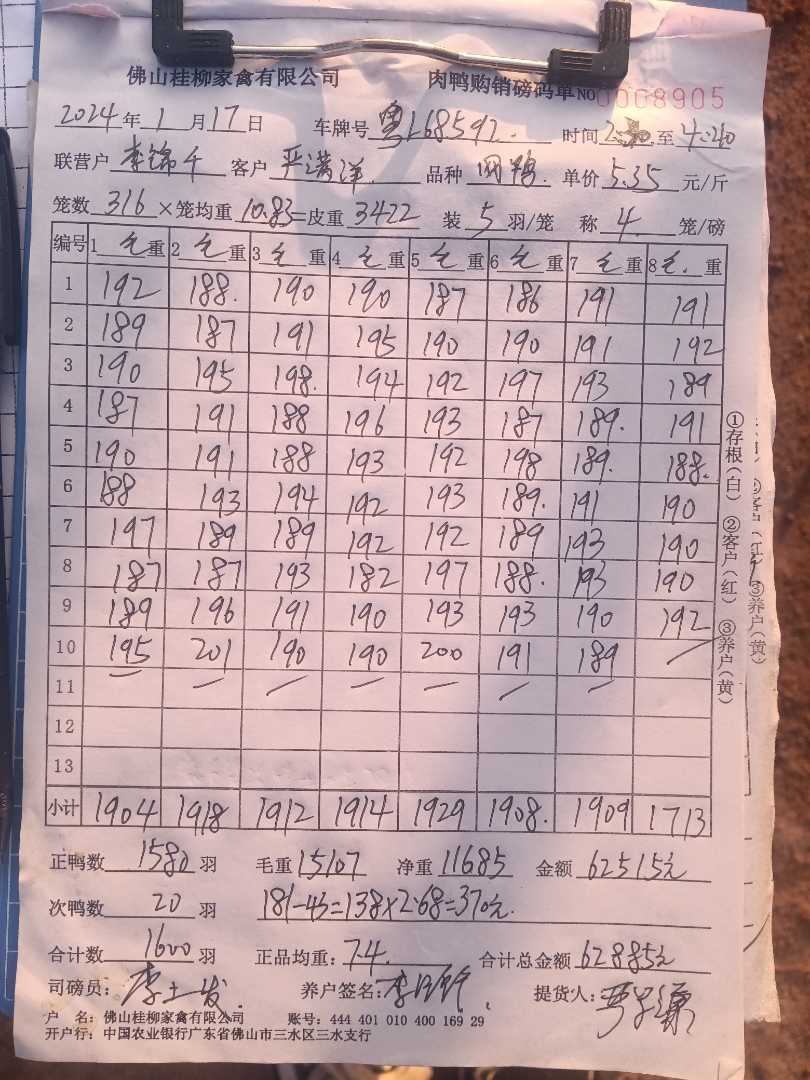 佛山桂柳家禽有限公司 肉鸭购销磅码单 NO 0008905
2024年1月17日 车牌号 粤L68592. 时间 至4:40
联营户 李锦千 客户 严满洋. 品种 单价 5.35 元/斤
笼数 316 ×笼均重 10.83 =皮重 3422 装 5 羽/笼 称 4 笼/磅
编号 1 毛重 2 毛重 3 毛重 4 毛重 5 毛重 6 毛重 7 毛重 8 毛重
1 192 188. 190 190 187 186 191 191
2 189 187 191 195 190 190 191 192
3 190 195 198. 194 192 197 193 189
4 187 191 188 196 193 187 189. 191
5 190 191 188 193 192 198 189. 188.
6 188 193 194 192 193 189. 191 190
7 197 189 189 192 192 189 193 190
8 187 187 193 182 197 188. 193 190
9 189 196 191 190 193 193 190 192
10 195 201 190 190 200 191 189
11
12
13
小计 1904 1918 1912 1914 1929 1908. 1909 1713
正鸭数 1580 羽 毛重 15107 净重 11685 金额 62515元
次鸭数 20 羽 181-43=138×2.68=370元.
合计数 1600 羽 正品均重: 7.4. 合计总金额 62885元
司磅员: 李土发 养户签名: 提货人:
户 名: 佛山桂柳家禽有限公司 账号: 444 401 010 400 169 29
开户行: 中国农业银行广东省佛山市三水区三水支行
①存根(白) ②客户(红) ③养户(黄)
②客户(红) ③养户(黄)